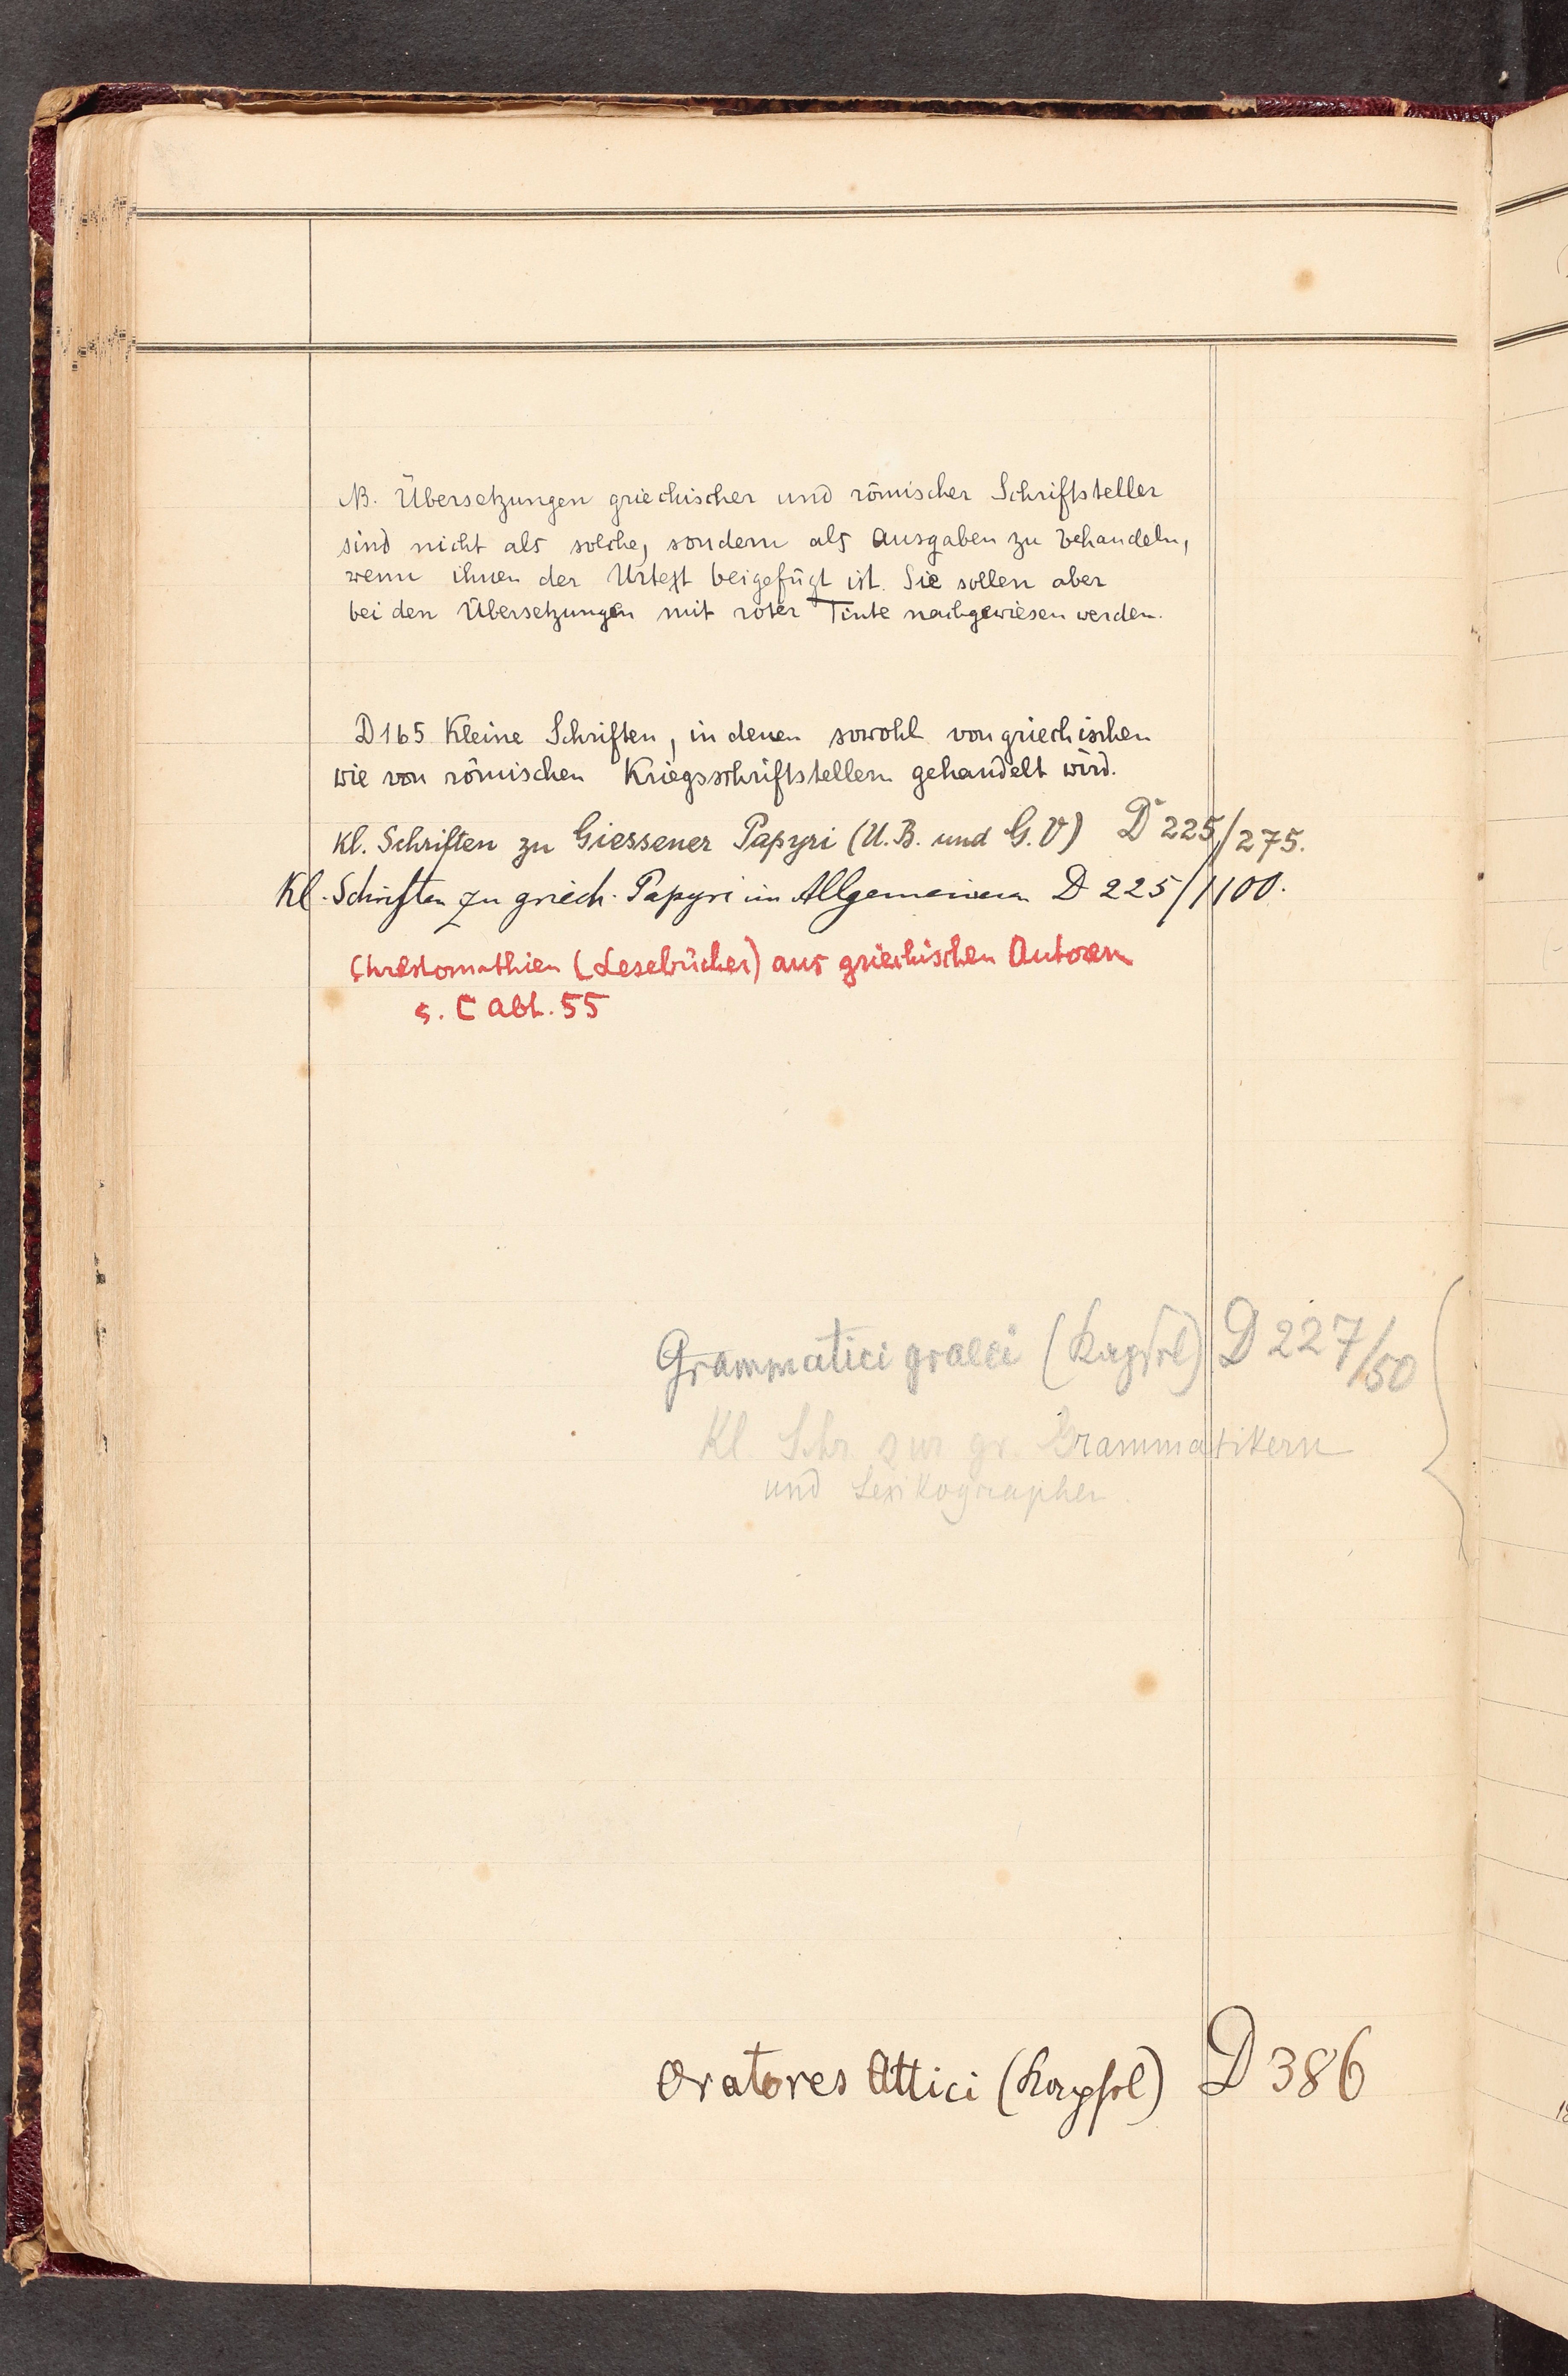 NB. Übersetzungen griechischer und römischer Schriftsteller
sind nicht als solche, sondern als Ausgaben zu behandeln,
wenn ihnen der Urtext beigefügt ist. Sie sollen aber
bei den Übersetzungen mit roter Tinte nachgewiesen werden.
D 165 Kleine Schriften, in denen sowohl von griechischen
wie von römischen Kriegsschriftstellern gehandelt wird.
Kl. Schriften zu Giessener Papyri (U.B. und G.V) D 225/275.
Kl. Schriften zu griech. Papyri im Allgemeinen D 225/1100.
Chrestomathien (Lesebücher) aus griechischen Autoren
s. C Abt. 55
Grammatici graeci (Kapsel) D 227/50
Kl. Schr. zur gr. Grammatikern
und Lexikographen.
Oratores Attici (Kapsel) D 386